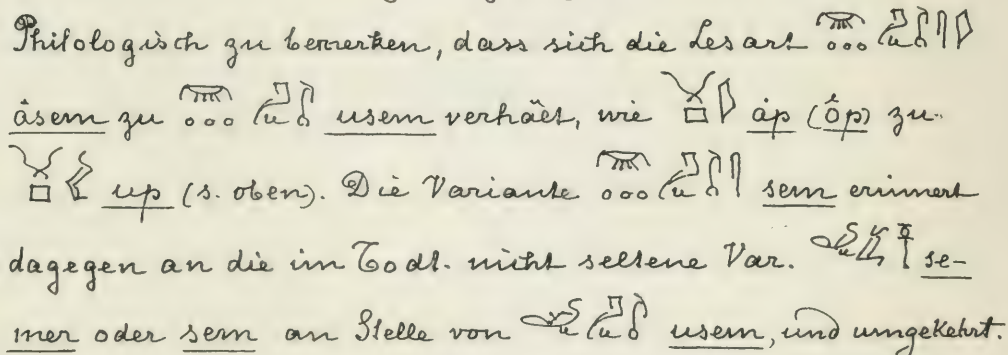 Philologisch zu bemerken, dass sich die Lesart
åsem zu usem verhält, wie áp (ôp) zu
up (s. oben). Die Variante sem erinnert
dagegen an die im Todt. nicht seltene Var. se-
mer oder sem an Stelle von usem, und umgekehrt.